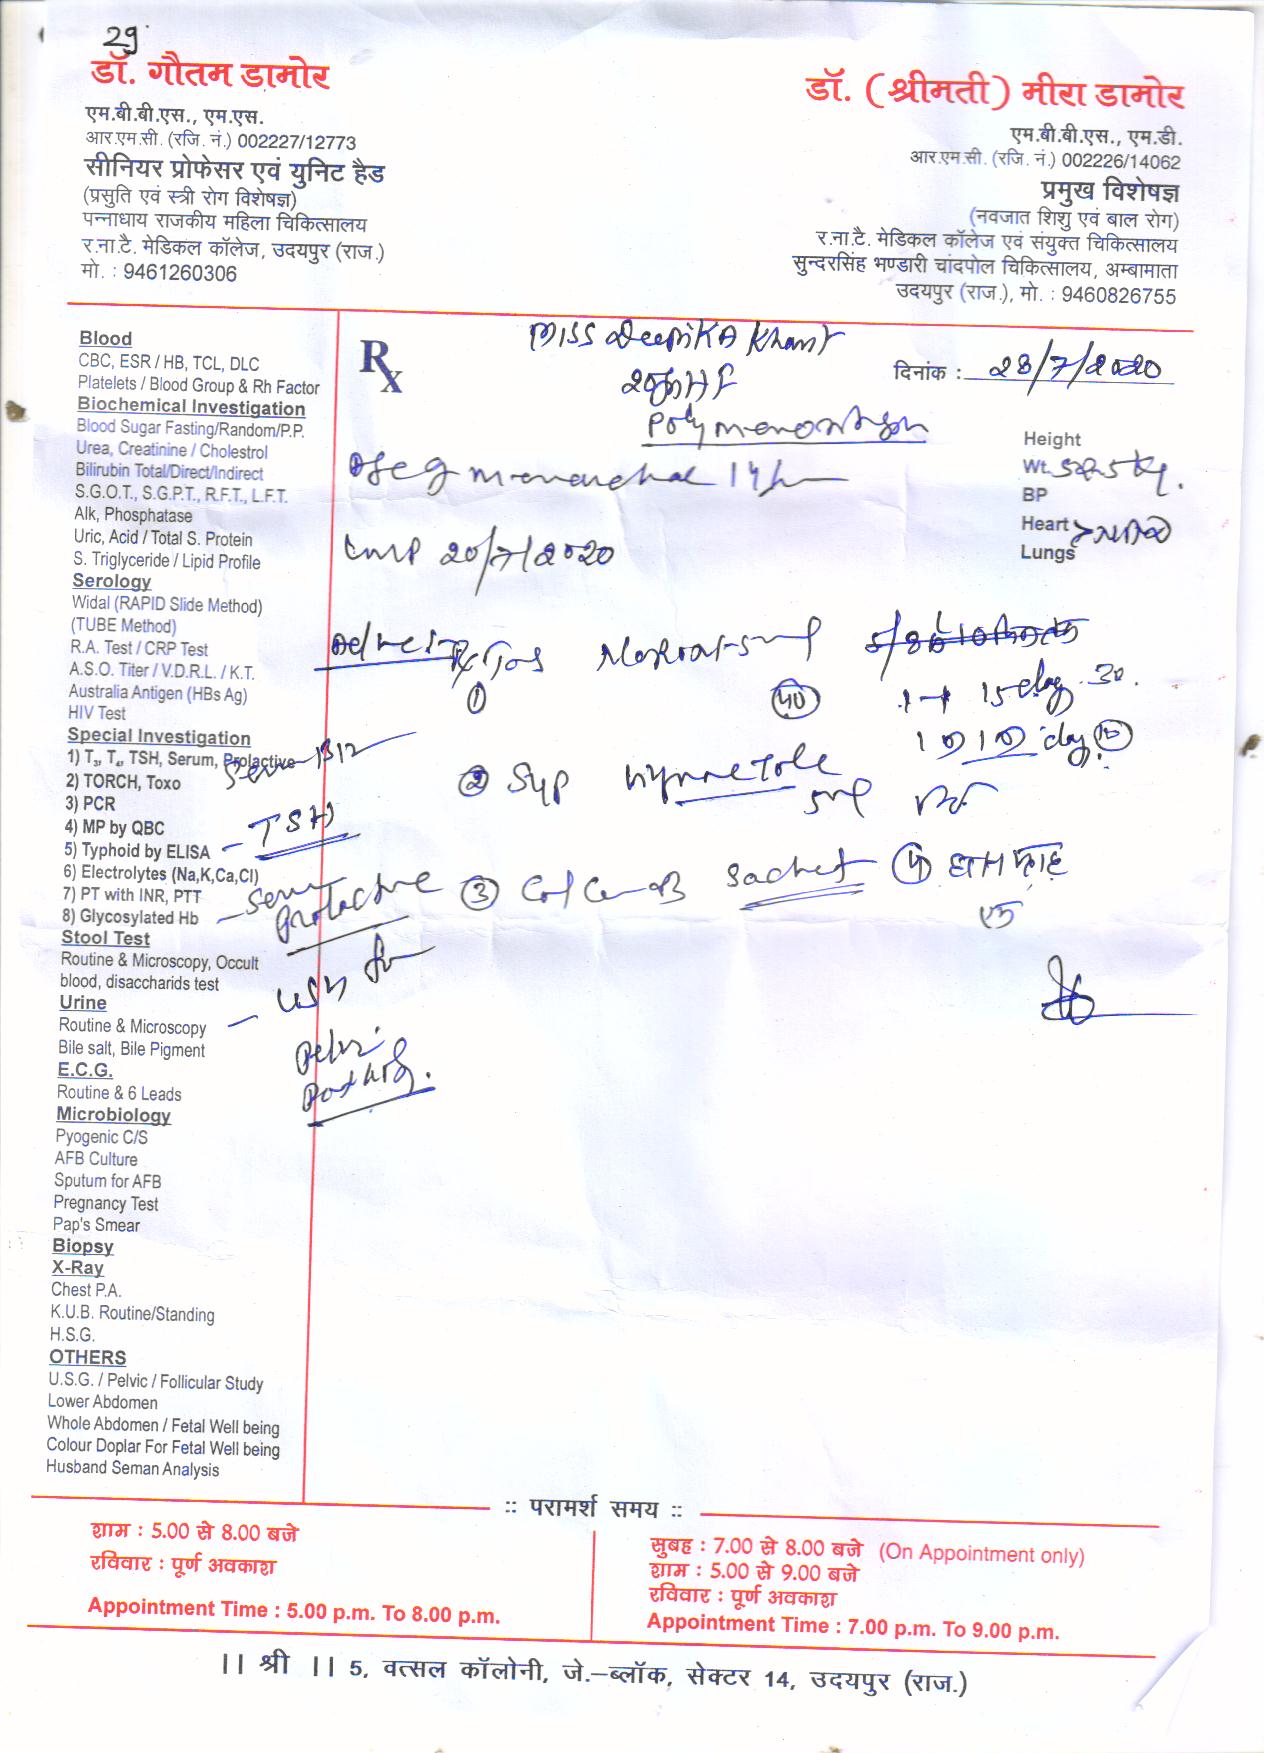 29
डॉ. गौतम डामोर
एम.बी.बी.एस., एम.एस.
आर.एम.सी. (रजि. नं.) 002227/12773
सीनियर प्रोफेसर एवं युनिट हैड
(प्रसुति एवं स्त्री रोग विशेषज्ञ)
पन्नाधाय राजकीय महिला चिकित्सालय
र.ना.टै. मेडिकल कॉलेज, उदयपुर (राज.)
मो. : 9461260306
डॉ. (श्रीमती) मीरा डामोर
एम.बी.बी.एस., एम.डी.
आर.एम.सी. (रजि. नं.) 002226/14062
प्रमुख विशेषज्ञ
(नवजात शिशु एवं बाल रोग)
र.ना.टै. मेडिकल कॉलेज एवं संयुक्त चिकित्सालय
सुन्दरसिंह भण्डारी चांदपोल चिकित्सालय, अम्बामाता
उदयपुर (राज.), मो. : 9460826755
Blood
CBC, ESR / HB, TCL, DLC
Platelets / Blood Group & Rh Factor
Biochemical Investigation
Blood Sugar Fasting/Random/P.P.
Urea, Creatinine / Cholestrol
Bilirubin Total/Direct/Indirect
S.G.O.T., S.G.P.T., R.F.T., L.F.T.
Alk, Phosphatase
Uric, Acid / Total S. Protein
S. Triglyceride / Lipid Profile
Serology
Widal (RAPID Slide Method)
(TUBE Method)
R.A. Test / CRP Test
A.S.O. Titer / V.D.R.L. / K.T.
Australia Antigen (HBs Ag)
HIV Test
Special Investigation
1) T₃, T₄, TSH, Serum, Prolactive
2) TORCH, Toxo
3) PCR
4) MP by QBC
5) Typhoid by ELISA
6) Electrolytes (Na,K,Ca,Cl)
7) PT with INR, PTT
8) Glycosylated Hb
Stool Test
Routine & Microscopy, Occult
blood, disaccharids test
Urine
Routine & Microscopy
Bile salt, Bile Pigment
E.C.G.
Routine & 6 Leads
Microbiology
Pyogenic C/S
AFB Culture
Sputum for AFB
Pregnancy Test
Pap's Smear
Biopsy
X-Ray
Chest P.A.
K.U.B. Routine/Standing
H.S.G.
OTHERS
U.S.G. / Pelvic / Follicular Study
Lower Abdomen
Whole Abdomen / Fetal Well being
Colour Doplar For Fetal Well being
Husband Seman Analysis
Rx
Miss Deepika
दिनांक : 28/7/2020
Height
Wt. Kg.
BP
Heart
Lungs
LMP 20/7/2020
①
40
1-1 15 day 30
② Syp
③ Sachet ④
Serum B12
- TSH
- Serum Prolactine
- USG for
Pelvic
:: परामर्श समय ::
शाम : 5.00 से 8.00 बजे
रविवार : पूर्ण अवकाश
Appointment Time : 5.00 p.m. To 8.00 p.m.
सुबह : 7.00 से 8.00 बजे (On Appointment only)
शाम : 5.00 से 9.00 बजे
रविवार : पूर्ण अवकाश
Appointment Time : 7.00 p.m. To 9.00 p.m.
|| श्री || 5, वत्सल कॉलोनी, जे.–ब्लॉक, सेक्टर 14, उदयपुर (राज.)